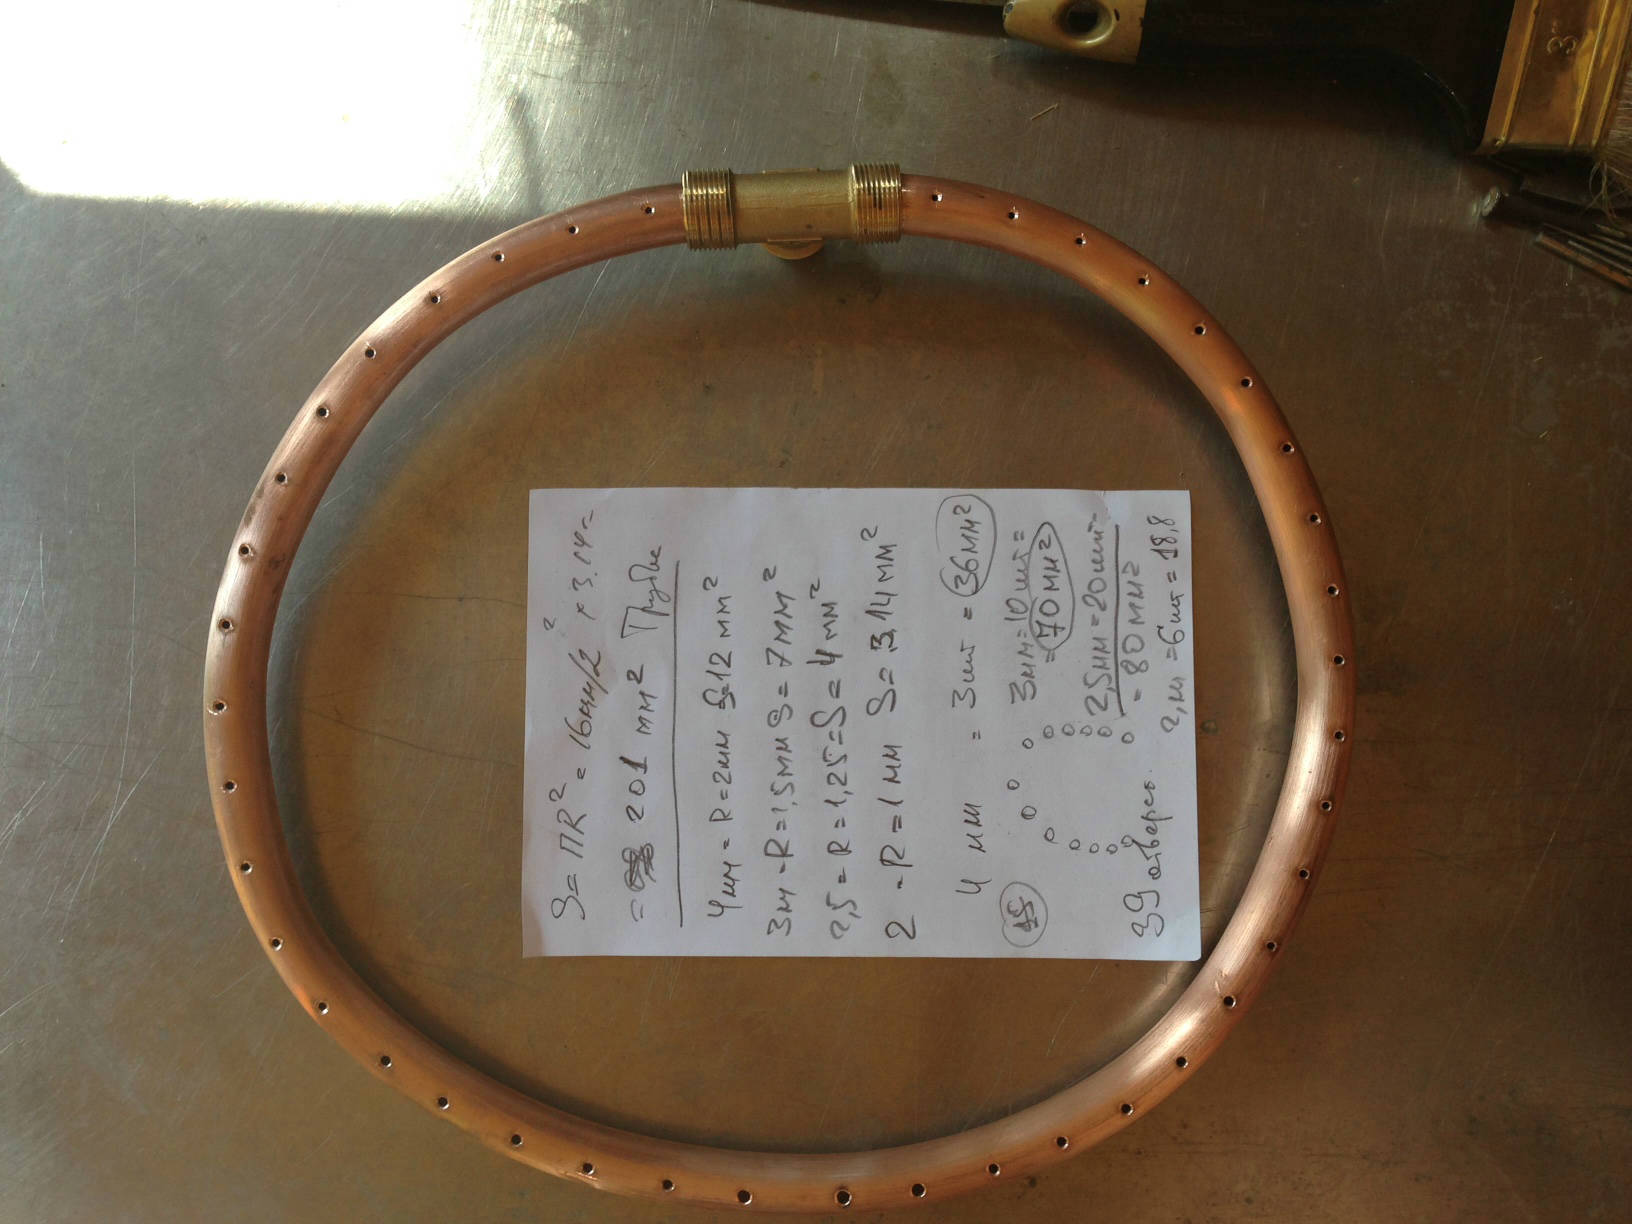 S = ПR² = 16мм/2² × 3.14 =
= 201 мм² Трубы
4мм = R = 2мм S=12мм²
3м = R = 1,5мм S = 7мм²
2,5 = R = 1,25 = S = 4мм²
2 = R = 1мм S = 3,14мм²
4 мм = 3шт = 36мм²
3мм = 10шт =
= 70мм²
2,5мм = 20шт =
= 80мм²
39 отверс.
2,м = 6шт = 18,8
3